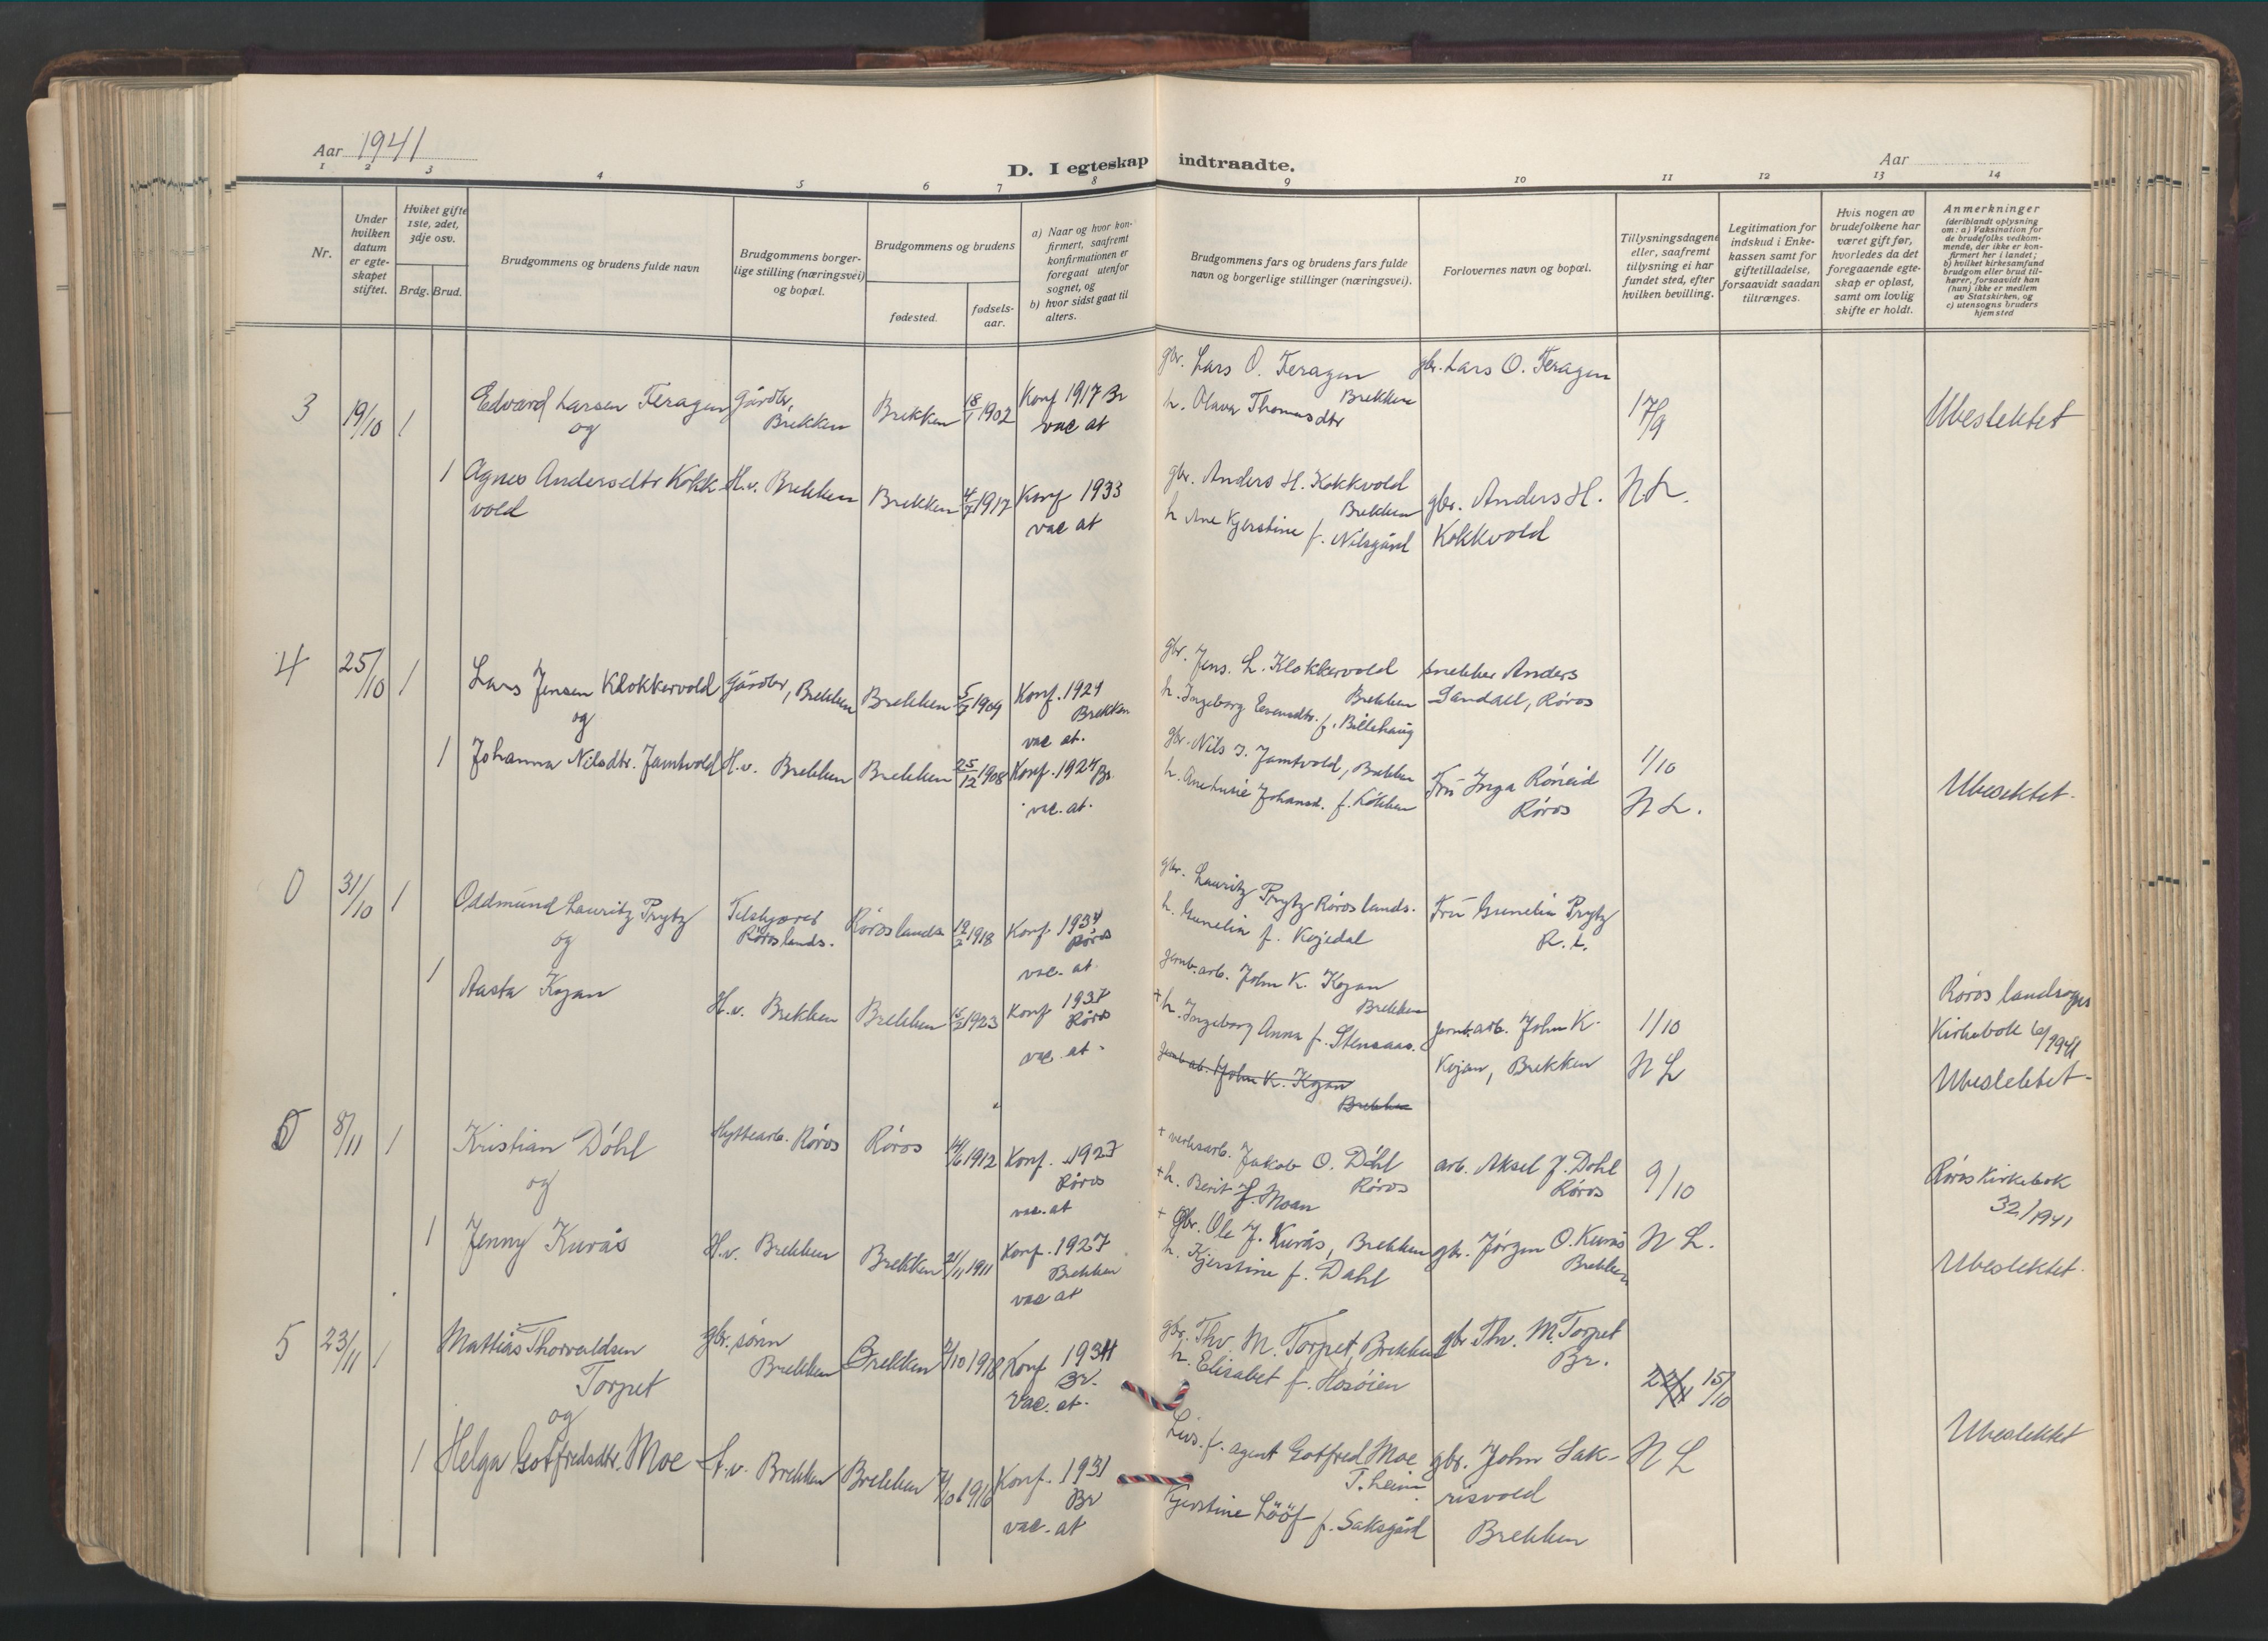 Aar 1941
D. I egteskap indtraadte.
Aar
1 2 3 4 5 6 7 8 9 10 11 12 13 14
Nr.
Under hvilken datum er egteskapet stiftet.
Hviket gifte 1ste, 2det, 3dje osv.
Brdg. Brud.
Brudgommens og brudens fulde navn
Brudgommens borgerlige stilling (næringsvei) og bopæl.
Brudgommens og brudens
fødested.
fødselsaar.
a) Naar og hvor konfirmert, saafremt konfirmationen er foregaat utenfor sognet, og
b) hvor sidst gaat til alters.
Brudgommens fars og brudens fars fulde navn og borgerlige stillinger (næringsvei).
Forlovernes navn og bopæl.
Tillysningsdagene eller, saafremt tillysning ei har fundet sted, efter hvilken bevilling.
Legitimation for indskud i Enkekassen samt for giftetilladelse, forsaavidt saadan tiltrænges.
Hvis nogen av brudefolkene har været gift før, hvorledes da det foregaaende egteskap er opløst, samt om lovlig skifte er holdt.
Anmerkninger
(deriblandt oplysning om: a) Vaksination for de brudefolks vedkommende, der ikke er konfirmert her i landet;
b) hvilket kirkesamfund brudgom eller brud tilhører, forsaavidt han (hun) ikke er medlem av Statskirken, og
c) utensogns bruders hjemsted
3 19/10 1 Edvard Larsen Feragen gårdbr, Brekken Brekken 18/1 1902 Konf 1917 Br vac at
gbr. Lars O. Feragen Brekken
h. Olava Thomasdtr
gbr. Lars O. Feragen
17/9
Ubeslektet
og
1 Agnes Andersdtr Kokkvold H.v. Brekken Brekken 4/7 1917 Konf 1933 vac at
gbr. Anders H. Kokkvold Brekken
h Ane Kjerstine f. Nilsgård
gbr. Anders H. Kokkvold
N L.
4 25/10 1 Lars Jensen Klokkervold Gårdbr, Brekken Brekken 1909 Konf. 1924 Brekken vac at.
gbr. Jens. L. Klokkervold Brekken
h. Ingeborg Evensdtr. f. Billehaug
snekker Anders Sandall, Røros
og
1 Johanna Nilsdtr. Jamtvold H.v. Brekken Brekken 25/12 1908 Konf. 1924 Br. vac. at.
gbr. Nils J. Jamtvold, Brekken
h. Ane Lusie Johansd. f. Løkken
Fru Inga Røneid Røros
1/10
N L.
Ubeslektet.
0 31/10 1 Oddmund Lauritz Prytz Røros lands. Røros lands 1918 Konf. 1934 Røros vac. at.
gbr. Lauritz Prytz Røros lands.
h. Gunelia f. Kojedal
Fru Gunelia Prytz R. L.
og
1 Aasta Kojan H.v. Brekken Brekken 1923 Konf 1937 Røros vac. at.
jernb. arb. John K. Kojan Brekken
+ h. Ingeborg Anna f. Stensaas.
jernb. arb. John K. Kojan Brekken
jernb. arb. John K. Kojan, Brekken
1/10
N L
Røros landsogns Kirkebok 6/1941
Ubeslektet.
0 8/11 1 Kristian Döhl Hyttearb. Røros Røros 14/6 1912 Konf. 1927 Røros vac. at
+ verksarb. Jakob O. Döhl Røros
+ h. Berit f. Moan
arb. Aksel J. Dohl Røros
9/10
Røros Kirkebok 32/1941
og
1 Jenny Kurås H.v. Brekken Brekken 21/11 1911 Konf. 1927 Brekken vac at
+ Gbr. Ole J. Kurås, Brekken
h. Kjerstine f. Dahl
gbr. Jörgen O. Kurås Brekken
N L.
Ubeslektet.
5 23/11 1 Mattias Thorvaldsen Torpet gbr. sønn Brekken Brekken 2/10 1918 Konf 1934 Br. vac. at.
gbr. Thv. M. Torpet, Brekken
h. Elisabet f. Hosöien
gbr Thv. M. Torpet Br.
22/11 15/10
og
1 Helga Gotfredsdtr. Moe H.v. Brekken Brekken 1916 Konf. 1931 Br vac. at
Livs. f. agent Gotfred Moe T.heim.
Kjerstine Lööf f. Saksgård
gbr. John Sakrisvold Brekken
N L
Ubeslektet